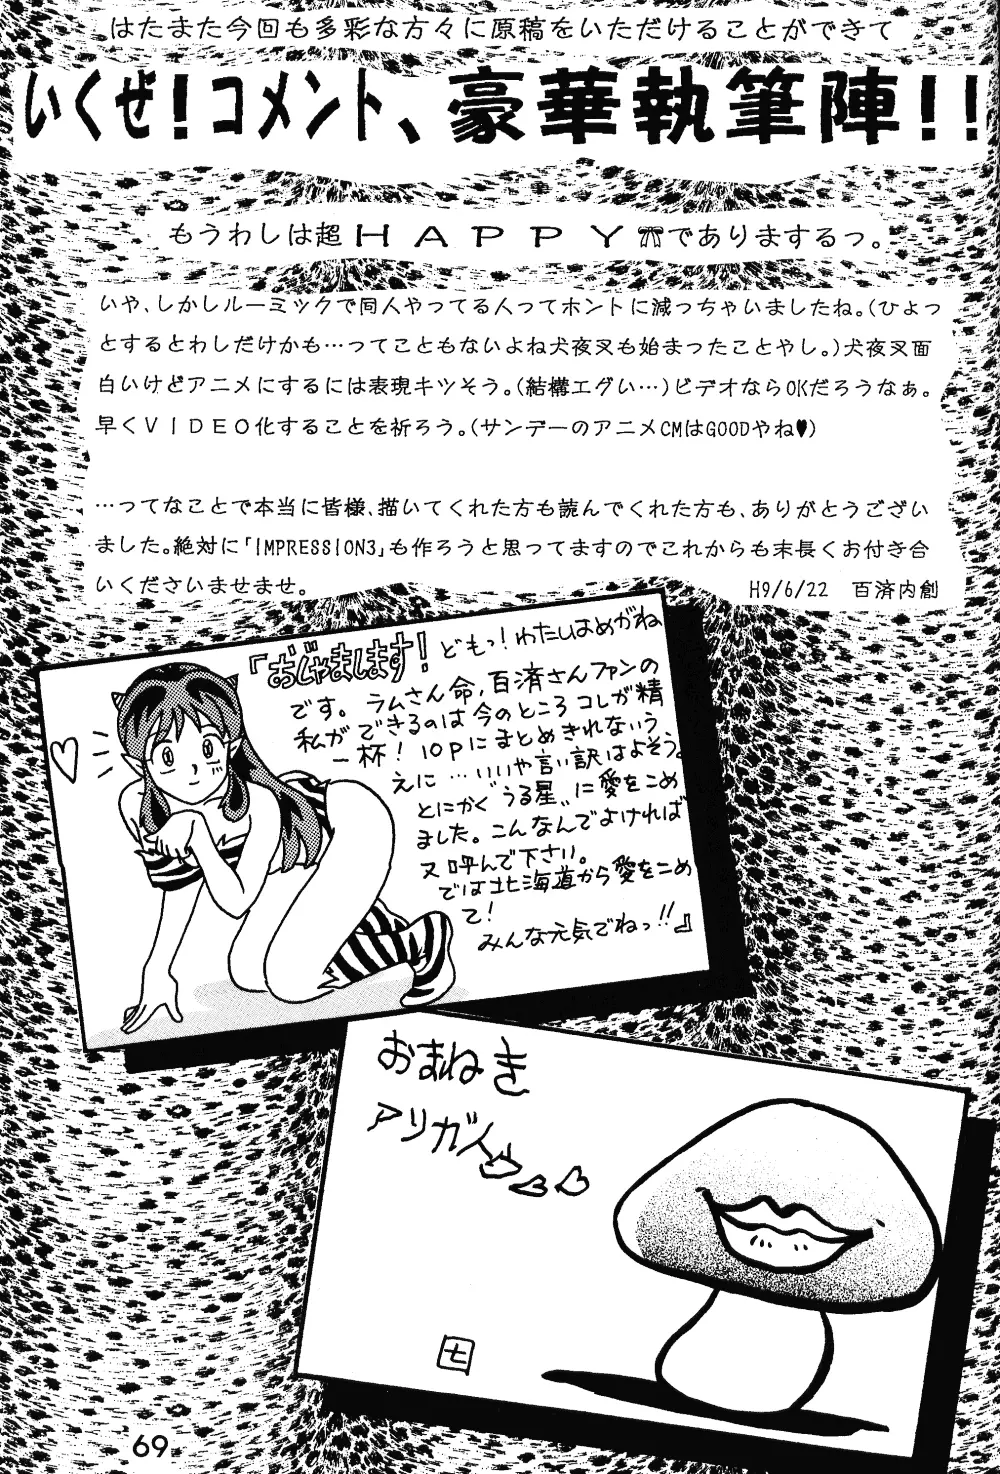 はたまた今回も多彩な方々に原稿をいただけることができて
いくぜ!コメント、豪華執筆陣!!
もうわしは超HAPPYでありまするっ。
いや、しかしルーミックで同人やってる人ってホントに減っちゃいましたね。(ひょっ
とするとわしだけかも…ってこともないよね犬夜叉も始まったことやし。)犬夜叉面
白いけどアニメにするには表現キツそう。(結構エグい…)ビデオならOKだろうなぁ。
早くVIDEO化することを祈ろう。(サンデーのアニメCMはGOODやね♥)
…ってなことで本当に皆様、描いてくれた方も読んでくれた方も、ありがとうござい
ました。絶対に「IMPRESSION3」も作ろうと思ってますのでこれからも末長くお付き合
いくださいませませ。
H9/6/22 百済内創
「おじゃまします! どもっ!わたしはめがね
です。ラムさん命、百済さんファンの
私ができるのは今のところコレが精
一杯!10Pにまとめきれないう
えに…いいや言い訳はよそう。
とにかく“うる星”に愛をこめ
ました。こんなんでよければ
又呼んで下さい。
では北海道から愛をこめ
て!
みんな元気でねっ!!』
おまねき
アリガトウ
七
69